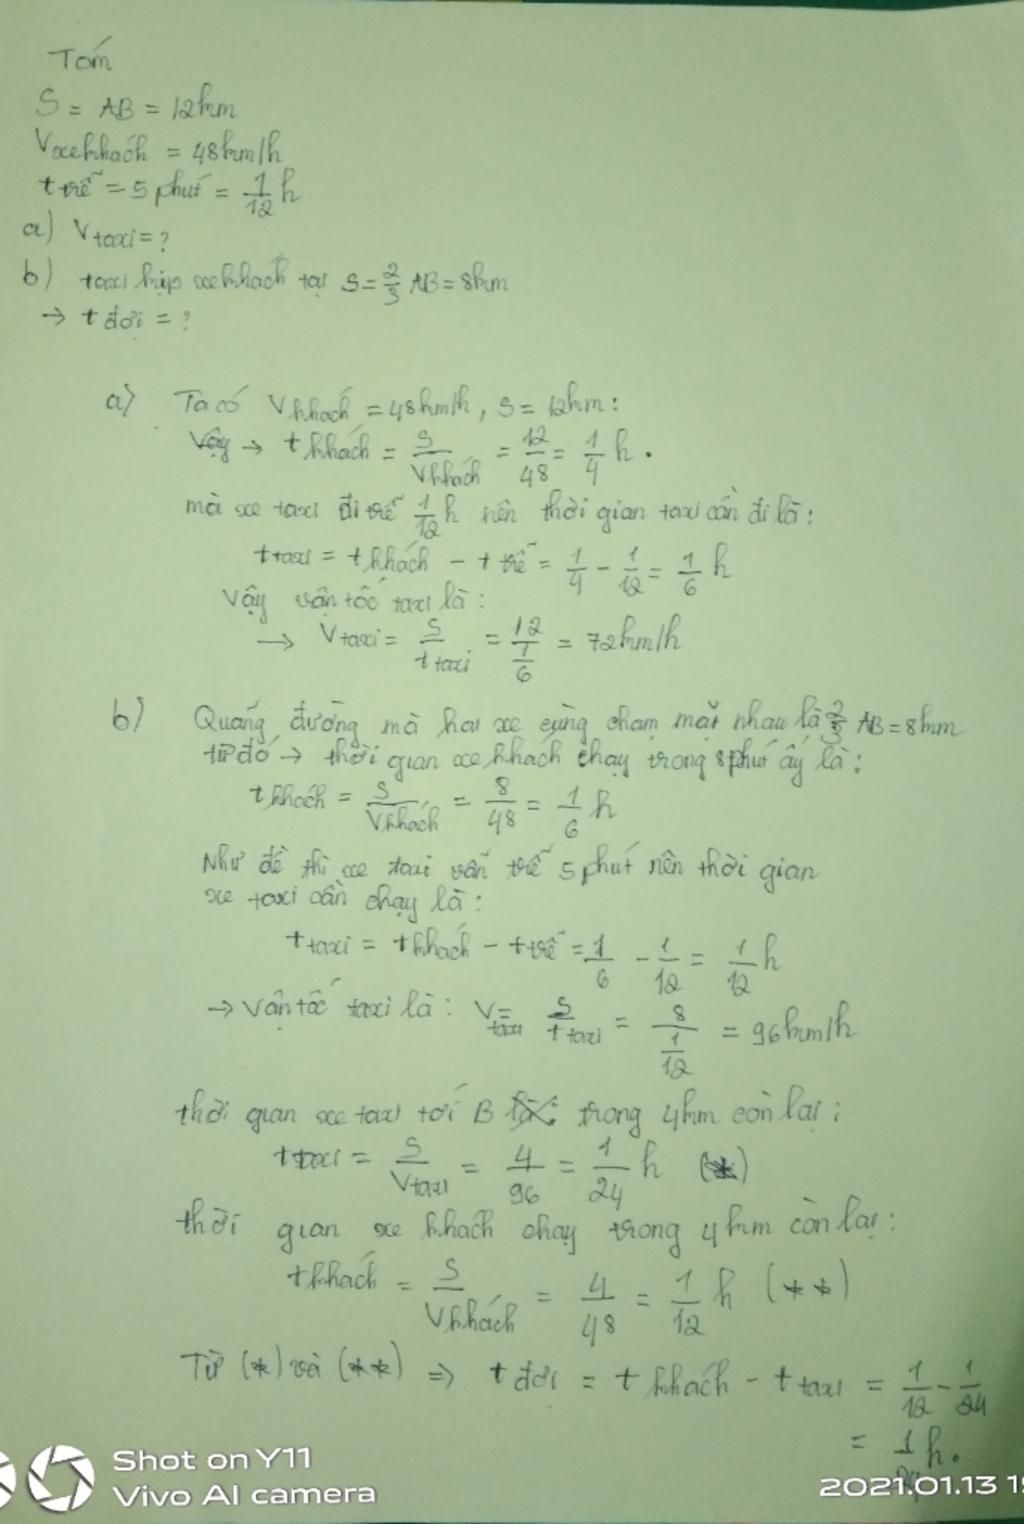 Tóm
S = AB = 12km
Vxekhách = 48km/h
t trễ = 5 phút = 1/12 h
a) Vtaxi = ?
b) taxi kịp xe khách tại S = 2/3 AB = 8km
→ t đợi = ?
a) Ta có Vkhách = 48km/h, S = 12km:
Vậy → t khách = S/Vkhách = 12/48 = 1/4 h.
mà xe taxi đi trễ 1/12 h nên thời gian taxi cần đi là:
ttaxi = t khách - t trễ = 1/4 - 1/12 = 1/6 h
Vậy vận tốc taxi là:
→ Vtaxi = S/t taxi = 12/(1/6) = 72km/h
b) Quãng đường mà hai xe cùng chạm mặt nhau là 2/3 AB = 8km
từ đó → thời gian xe khách chạy trong 8 phút ấy là:
t khách = S/Vkhách = 8/48 = 1/6 h
Như đề thì xe taxi vẫn trễ 5 phút nên thời gian
xe taxi cần chạy là:
t taxi = t khách - t trễ = 1/6 - 1/12 = 1/12 h
→ Vận tốc taxi là: Vtaxi = S/t taxi = 8/(1/12) = 96km/h
thời gian xe taxi tới B trong 4km còn lại:
ttaxi = S/Vtaxi = 4/96 = 1/24 h (*)
thời gian xe khách chạy trong 4km còn lại:
t khách = S/Vkhách = 4/48 = 1/12 h (**)
Từ (*) và (**) => t đợi = t khách - t taxi = 1/12 - 1/24
= 1/24 h.
Shot on Y11
Vivo AI camera
2021.01.13